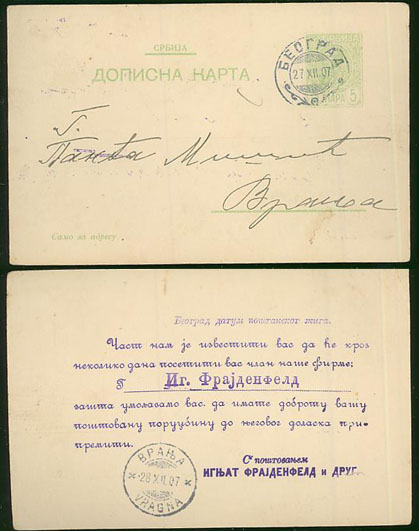 СРБИЈА
ДОПИСНА КАРТА
БЕОГРАД
27 XII. 07
ПАРА 5
Г.
Панта
Врања
Само за адресу
Београд датум поштанског жига.
Част нам је известити вас да ће кроз
неколико дана посетити вас члан наше фирме:
Г Иг. Фрајденфелд
зашта умољавамо вас. да имате доброту вашу
поштовану поруџбину до његовог доласка при-
премити.
С поштовањем
ИГЊАТ ФРАЈДЕНФЕЛД и ДРУГ
ВРАЊА
28 XII. 07
VRAGNA